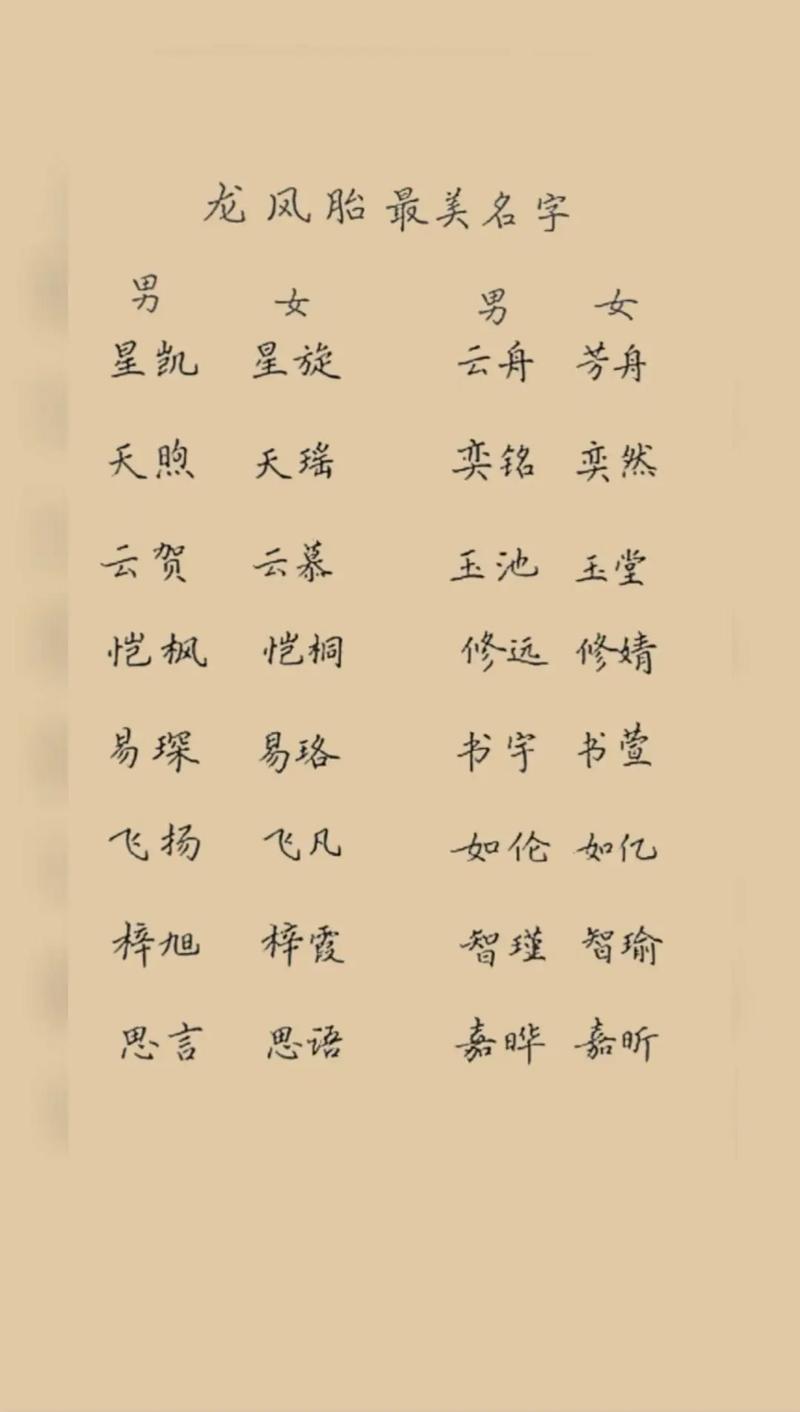 龙凤胎最美名字
男 女 男 女
星凯 星旋 云舟 芳舟
天煦 天瑶 奕铭 奕然
云贺 云慕 玉池 玉堂
恺枫 恺桐 修远 修婧
易琛 易珞 书宇 书萱
飞扬 飞凡 如伦 如亿
梓旭 梓霞 智瑾 智瑜
思言 思语 嘉晔 嘉昕